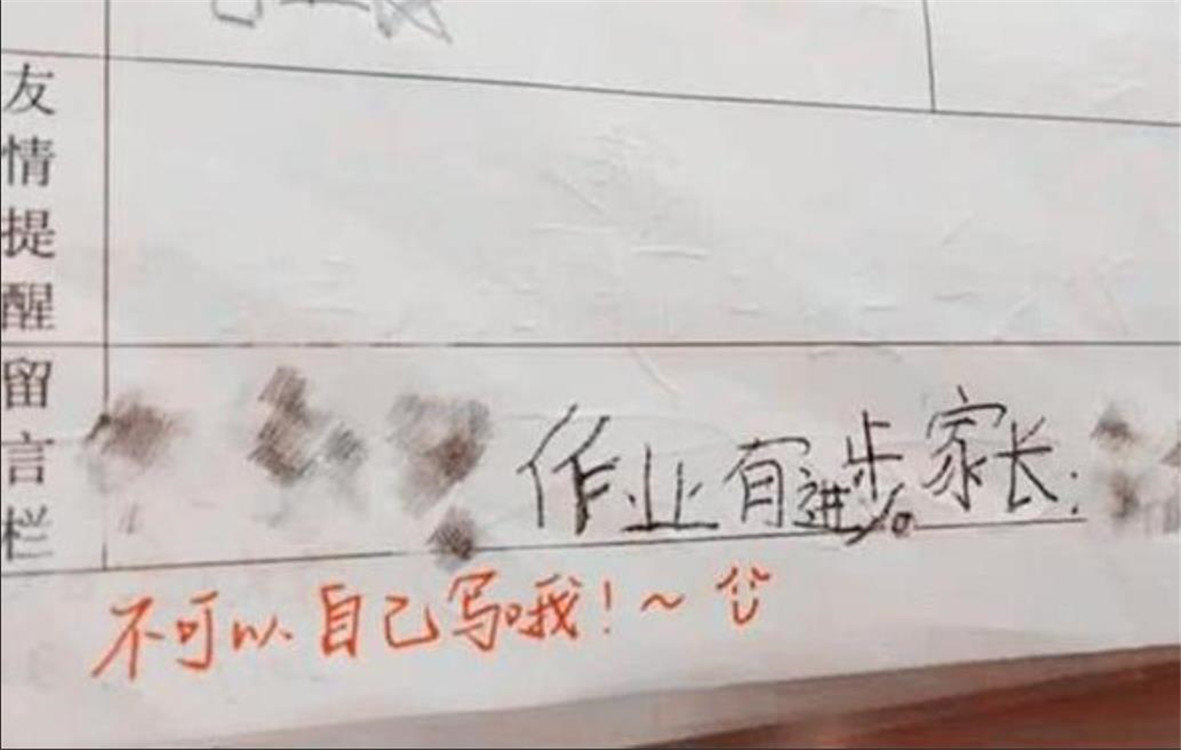 友情提醒
留言栏
作业有进步。家长：
不可以自己写哦！~